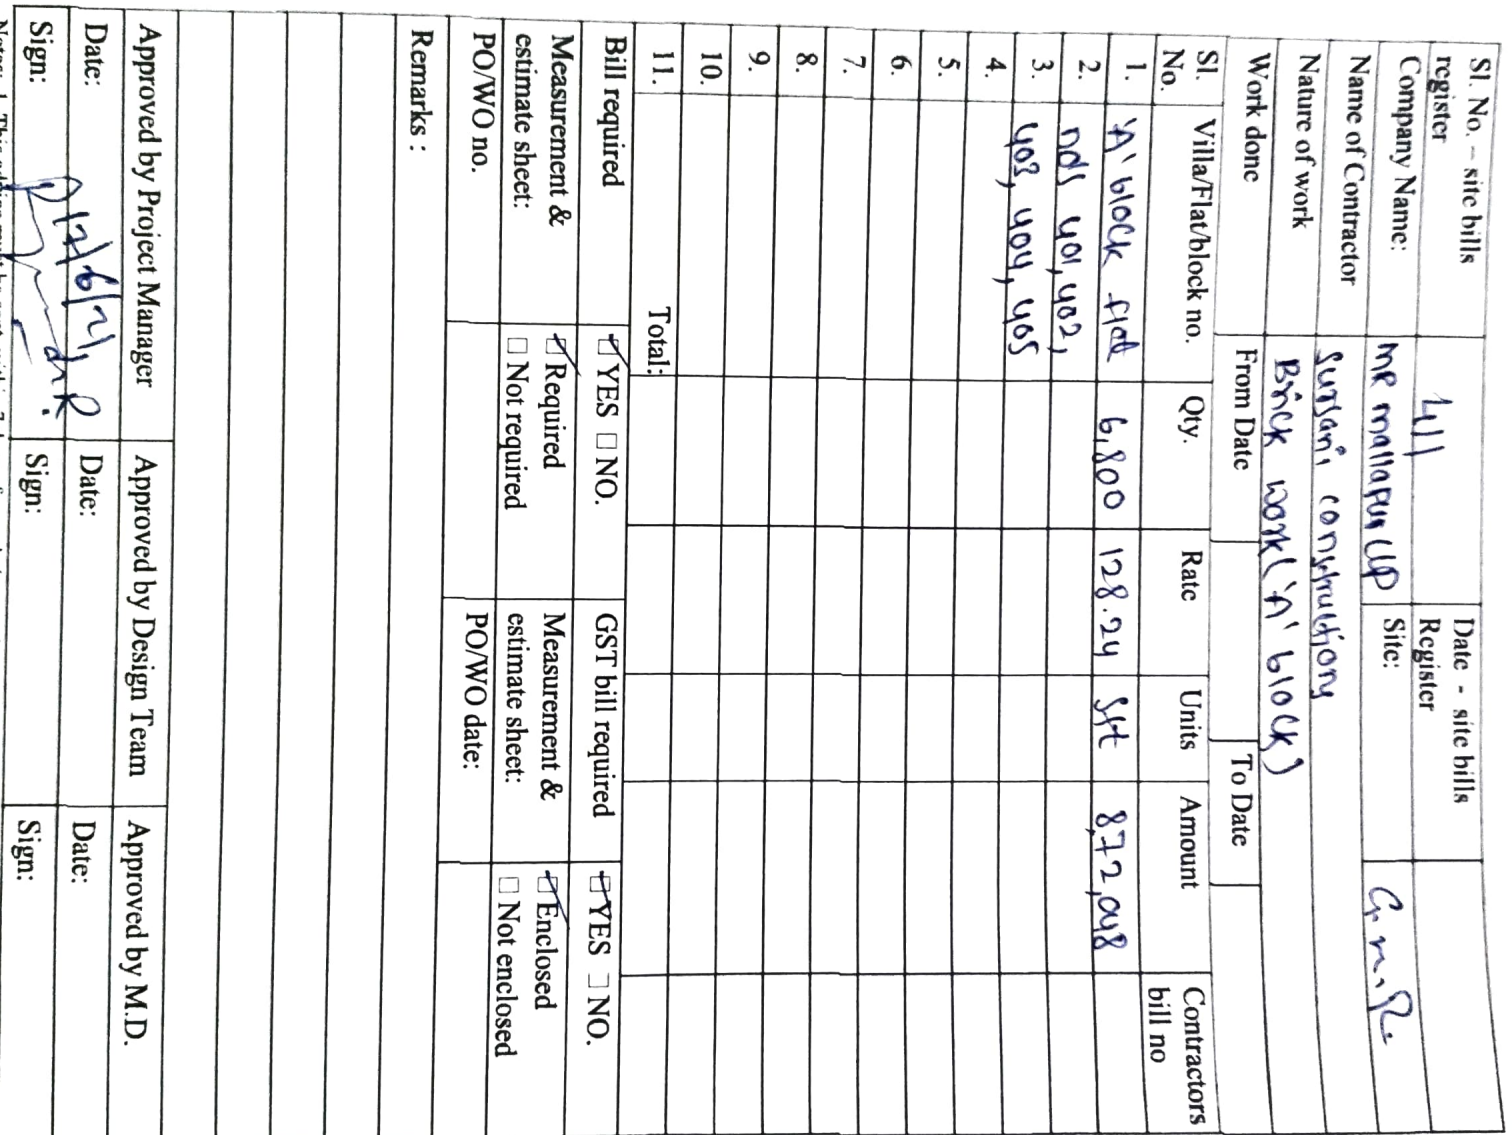 Sl. No. – site bills register 411 Date - site bills Register
Company Name: MR mallapur LLP Site: G.M.R.
Name of Contractor Sursani constructions
Nature of work Brick work ('A' block)
Work done From Date To Date
Sl. No. Villa/Flat/block no. Qty. Rate Units Amount Contractors bill no
1. 'A' block flat 6,800 128.24 Sft 8,72,048
2. nos 401, 402,
3. 403, 404, 405
4.
5.
6.
7.
8.
9.
10.
11. Total:
Bill required ☑ YES ☐ NO. GST bill required ☑ YES ☐ NO.
Measurement & estimate sheet: ☑ Required ☐ Not required Measurement & estimate sheet: ☑ Enclosed ☐ Not enclosed
PO/WO no. PO/WO date:
Remarks :
Approved by Project Manager Approved by Design Team Approved by M.D.
Date: 17/6/21 Date: Date:
Sign: Sign: Sign: